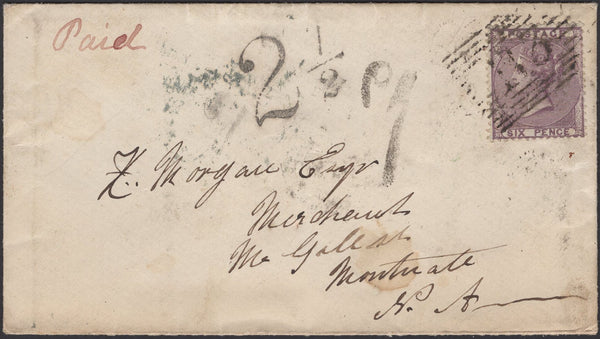 Paid
2 1/2
POSTAGE
SIX PENCE
Morgan Esqr
Merchant
Mc Gill St
N. A